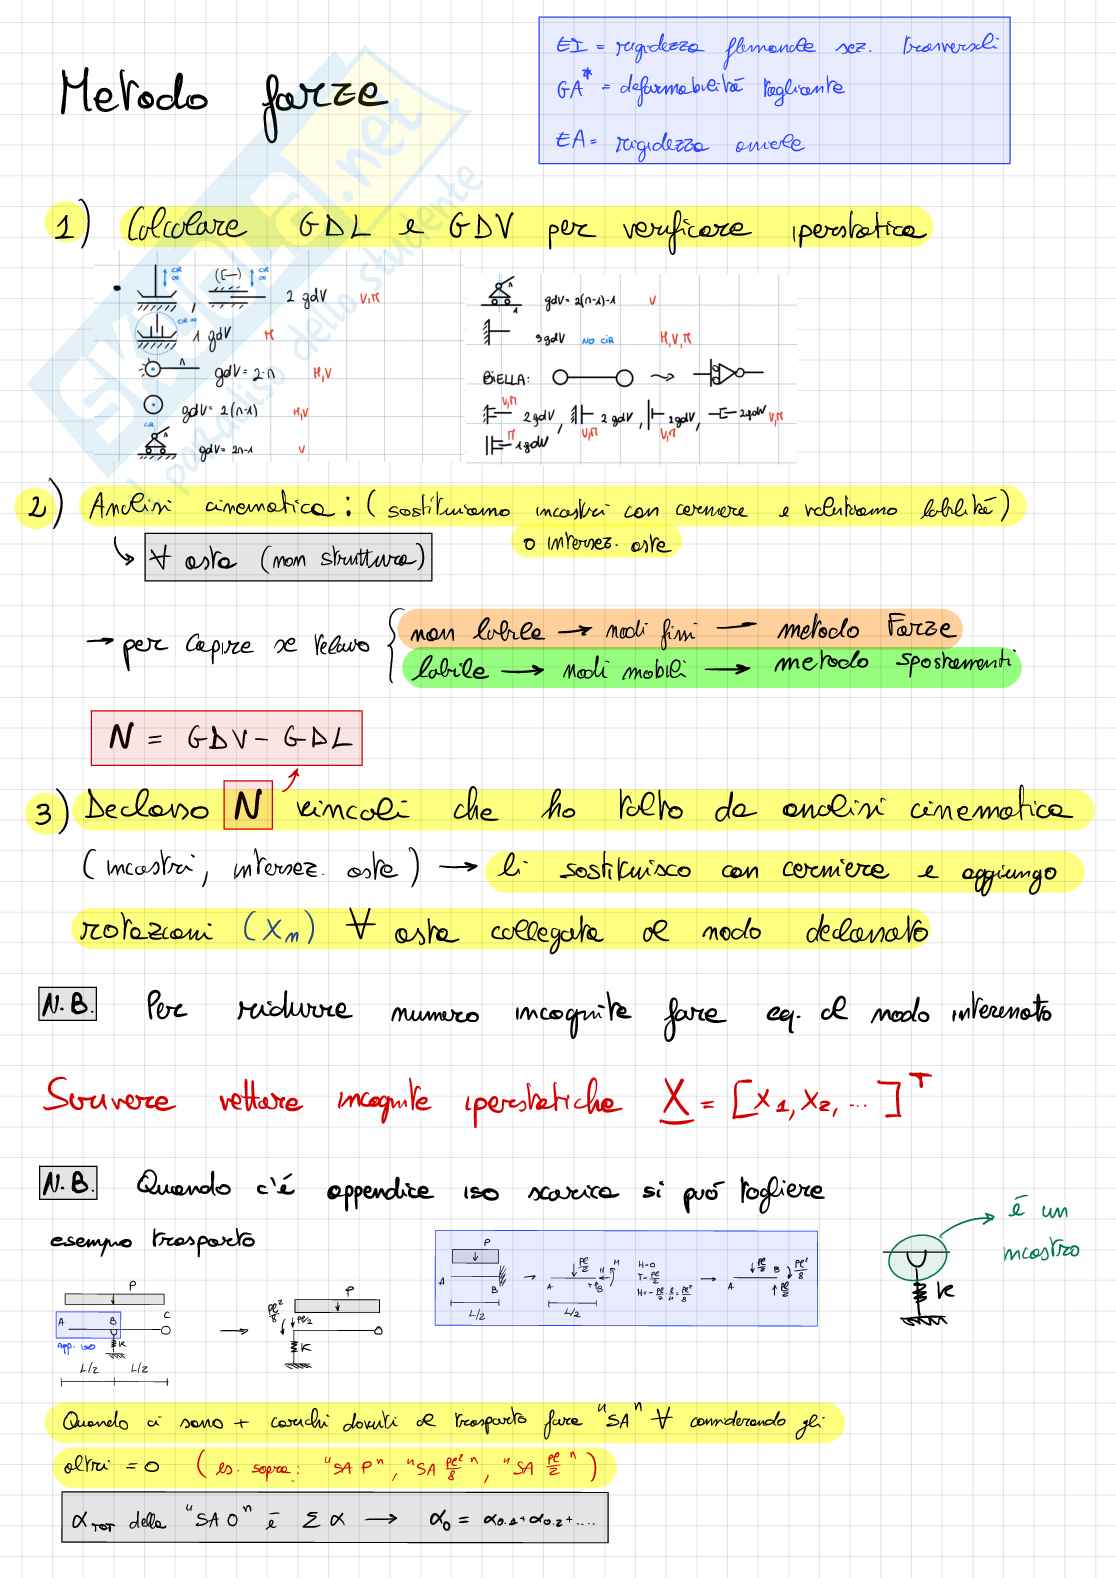 Metodo forze
EI = rigidezza flessionale sez. trasversali
GA* = deformabilità tagliante
EA = rigidezza assiale
1) Calcolare GDL e GDV per verificare iperstatica
2 gdV V,M
1 gdV M
gdV = 2·n H,V
gdV = 2(n-1) H,V
gdV = 2n-1 V
gdV = 2(n-1)-1 V
3 gdV NO CIR H,V,M
BIELLA:
2 gdV, 2 gdV, 2 gdV, 2 gdV V,M
1 gdV
2) Analisi cinematica: (sostituiamo incastri con cerniere e valutiamo labilità)
o intersez. aste
∀ asta (non struttura)
→ per capire se telaio
non labile → nodi fissi → metodo Forze
labile → nodi mobili → metodo spostamenti
N = GDV - GDL
3) Declasso N vincoli che ho tolto da analisi cinematica
(incastri, intersez. aste) → li sostituisco con cerniere e aggiungo
rotazioni (Xn) ∀ asta collegata al nodo declassato
N.B. Per ridurre numero incognite fare eq. al nodo
Scrivere vettore incognite iperstatiche X = [X1, X2, ...]^T
N.B. Quando c'é appendice iso scarica si può togliere
esempio trasporto
é un
incastro
K
P
A B C
App. iso
K
L/2 L/2
P
Pℓ²/8 Pℓ/2
K
P
A B
L/2
Pℓ/2 H M
A B
L/2
H=0
T=Pℓ/2
M=-Pℓ/2·ℓ/4=Pℓ²/8
Pℓ/2 B Pℓ²/8
A Pℓ/2
Quando ci sono + carichi dovuti al trasporto fare "SA" ∀ considerando gli
altri = 0 (es. sopra: "SA P", "SA Pℓ²/8", "SA Pℓ/2")
αTOT della "SA 0" é Σ α → α0 = α0.1 + α0.2 + ....